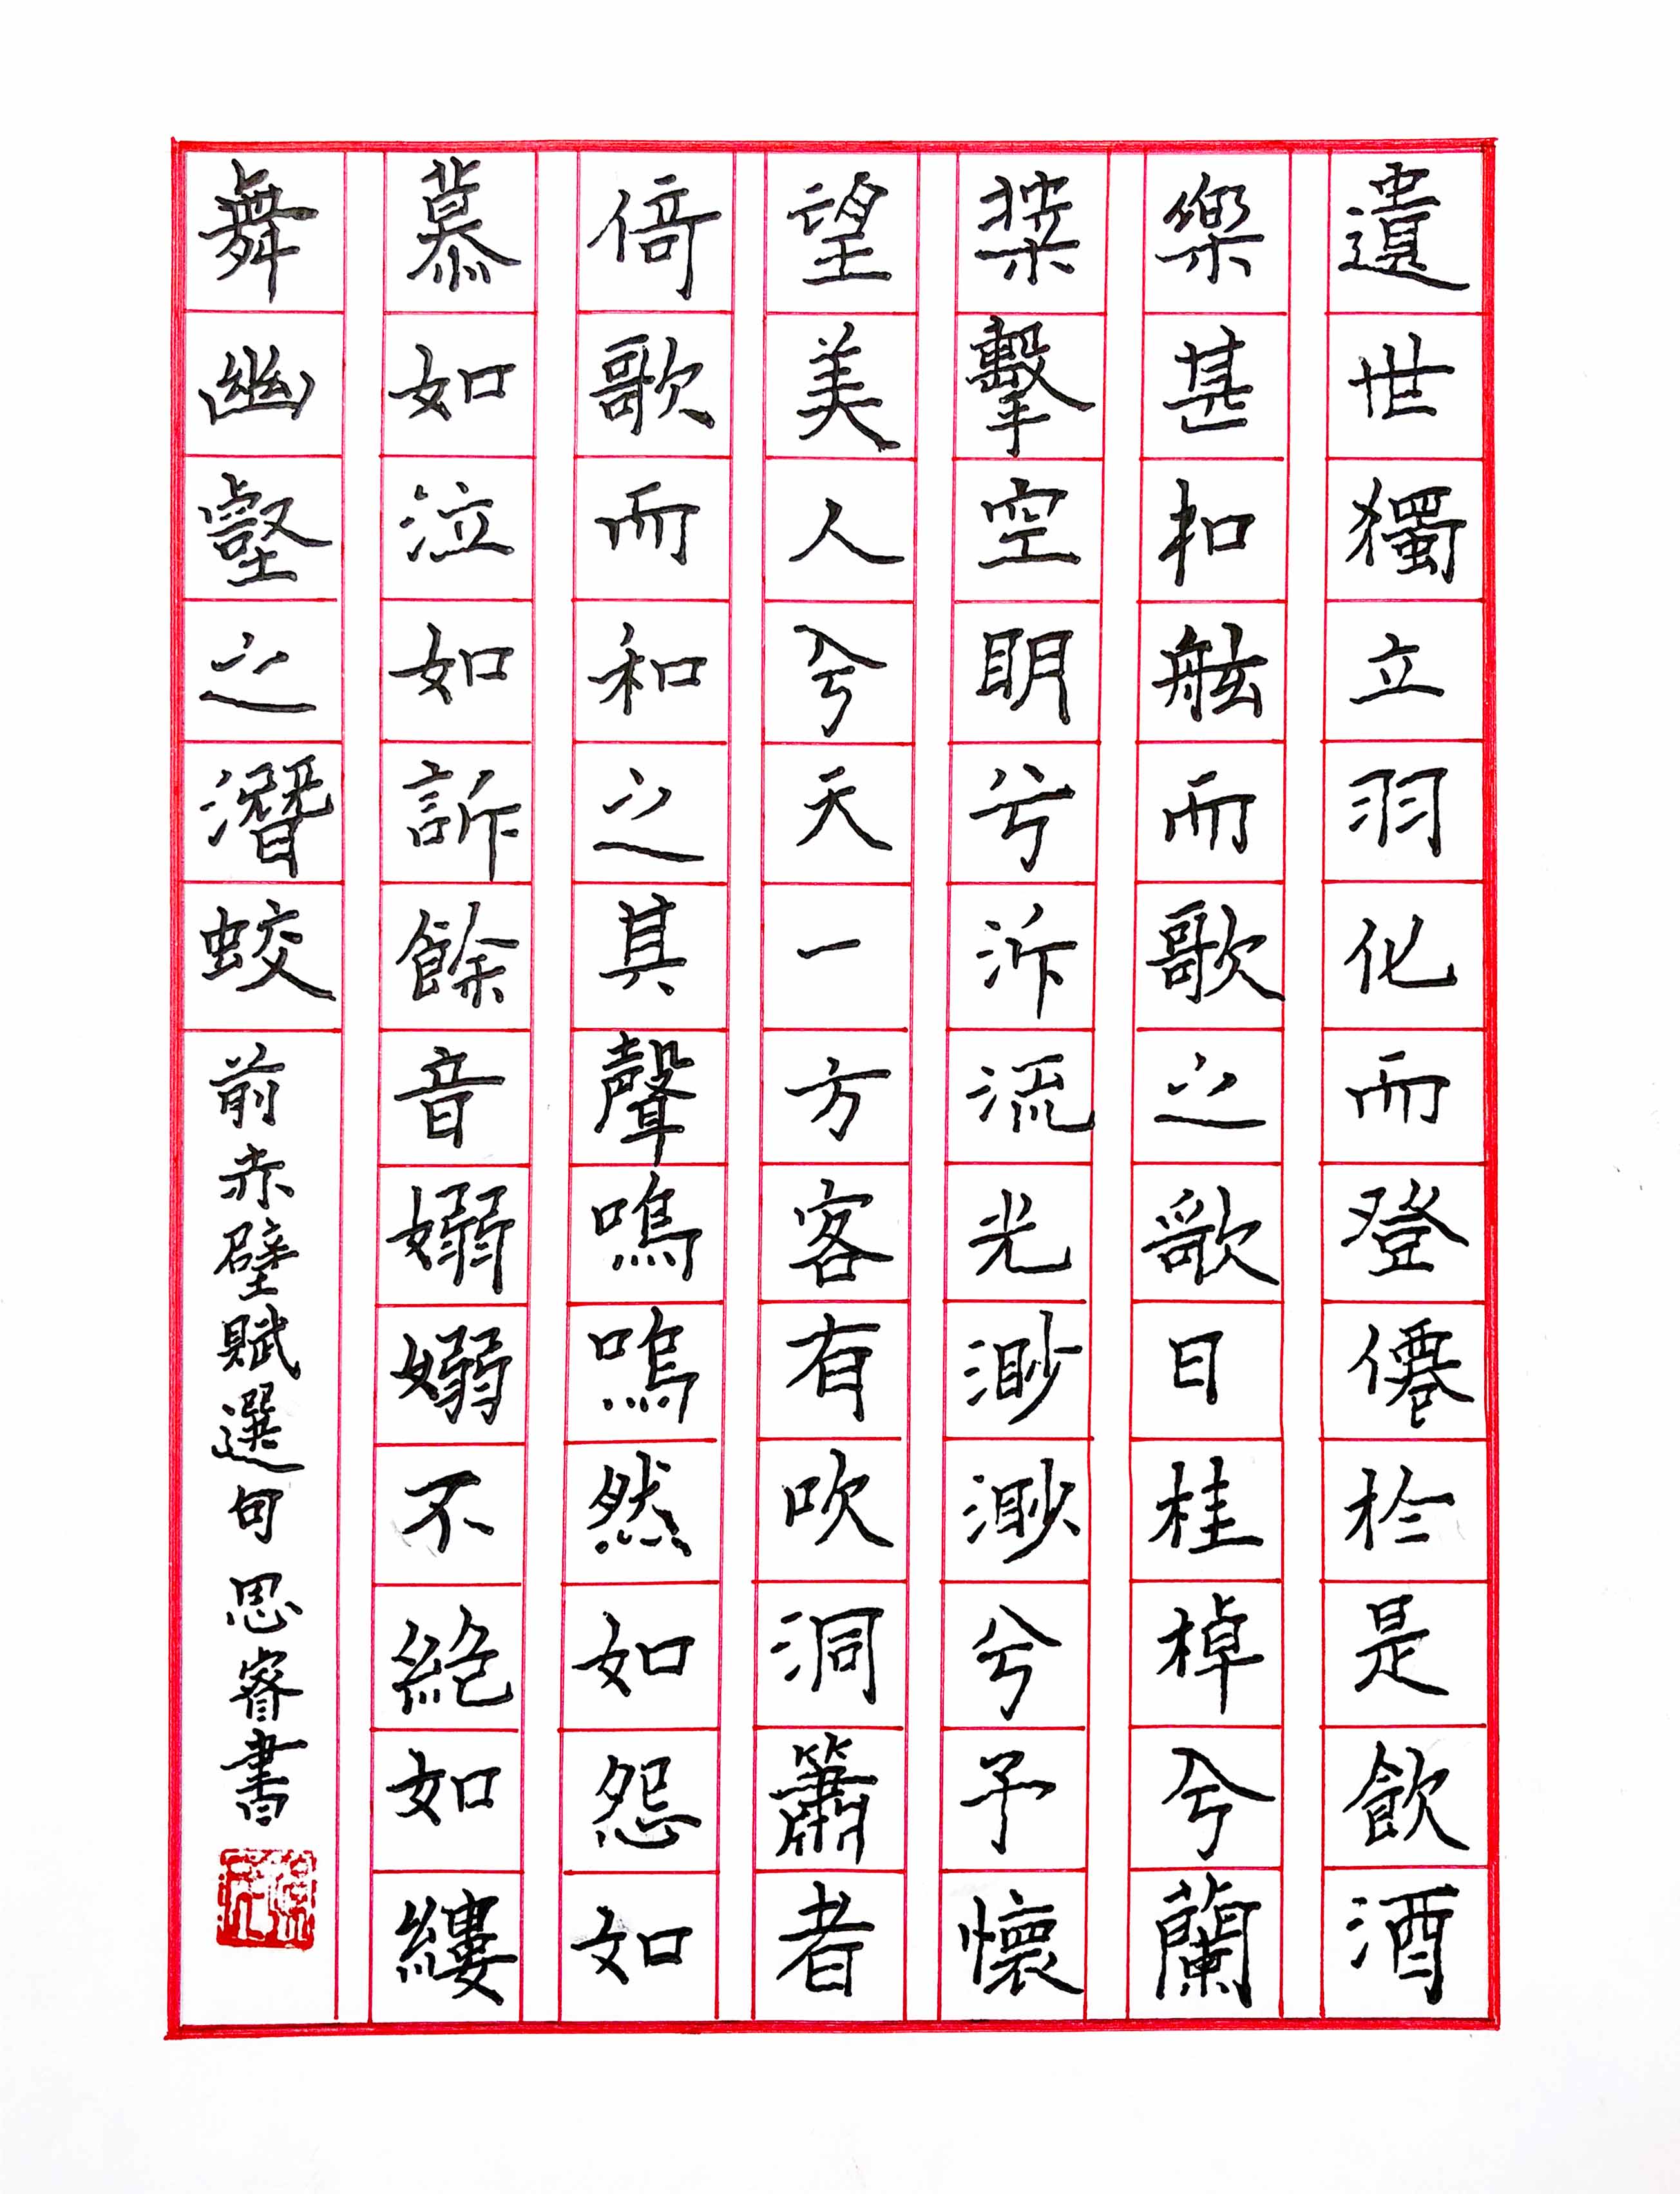 遺世獨立羽化而登僊於是飲酒
樂甚扣舷而歌之歌曰桂棹兮蘭
槳擊空明兮泝流光渺渺兮予懷
望美人兮天一方客有吹洞簫者
倚歌而和之其聲嗚嗚然如怨如
慕如泣如訴餘音嫋嫋不絕如縷
舞幽壑之潛蛟
前赤壁賦選句 思睿書